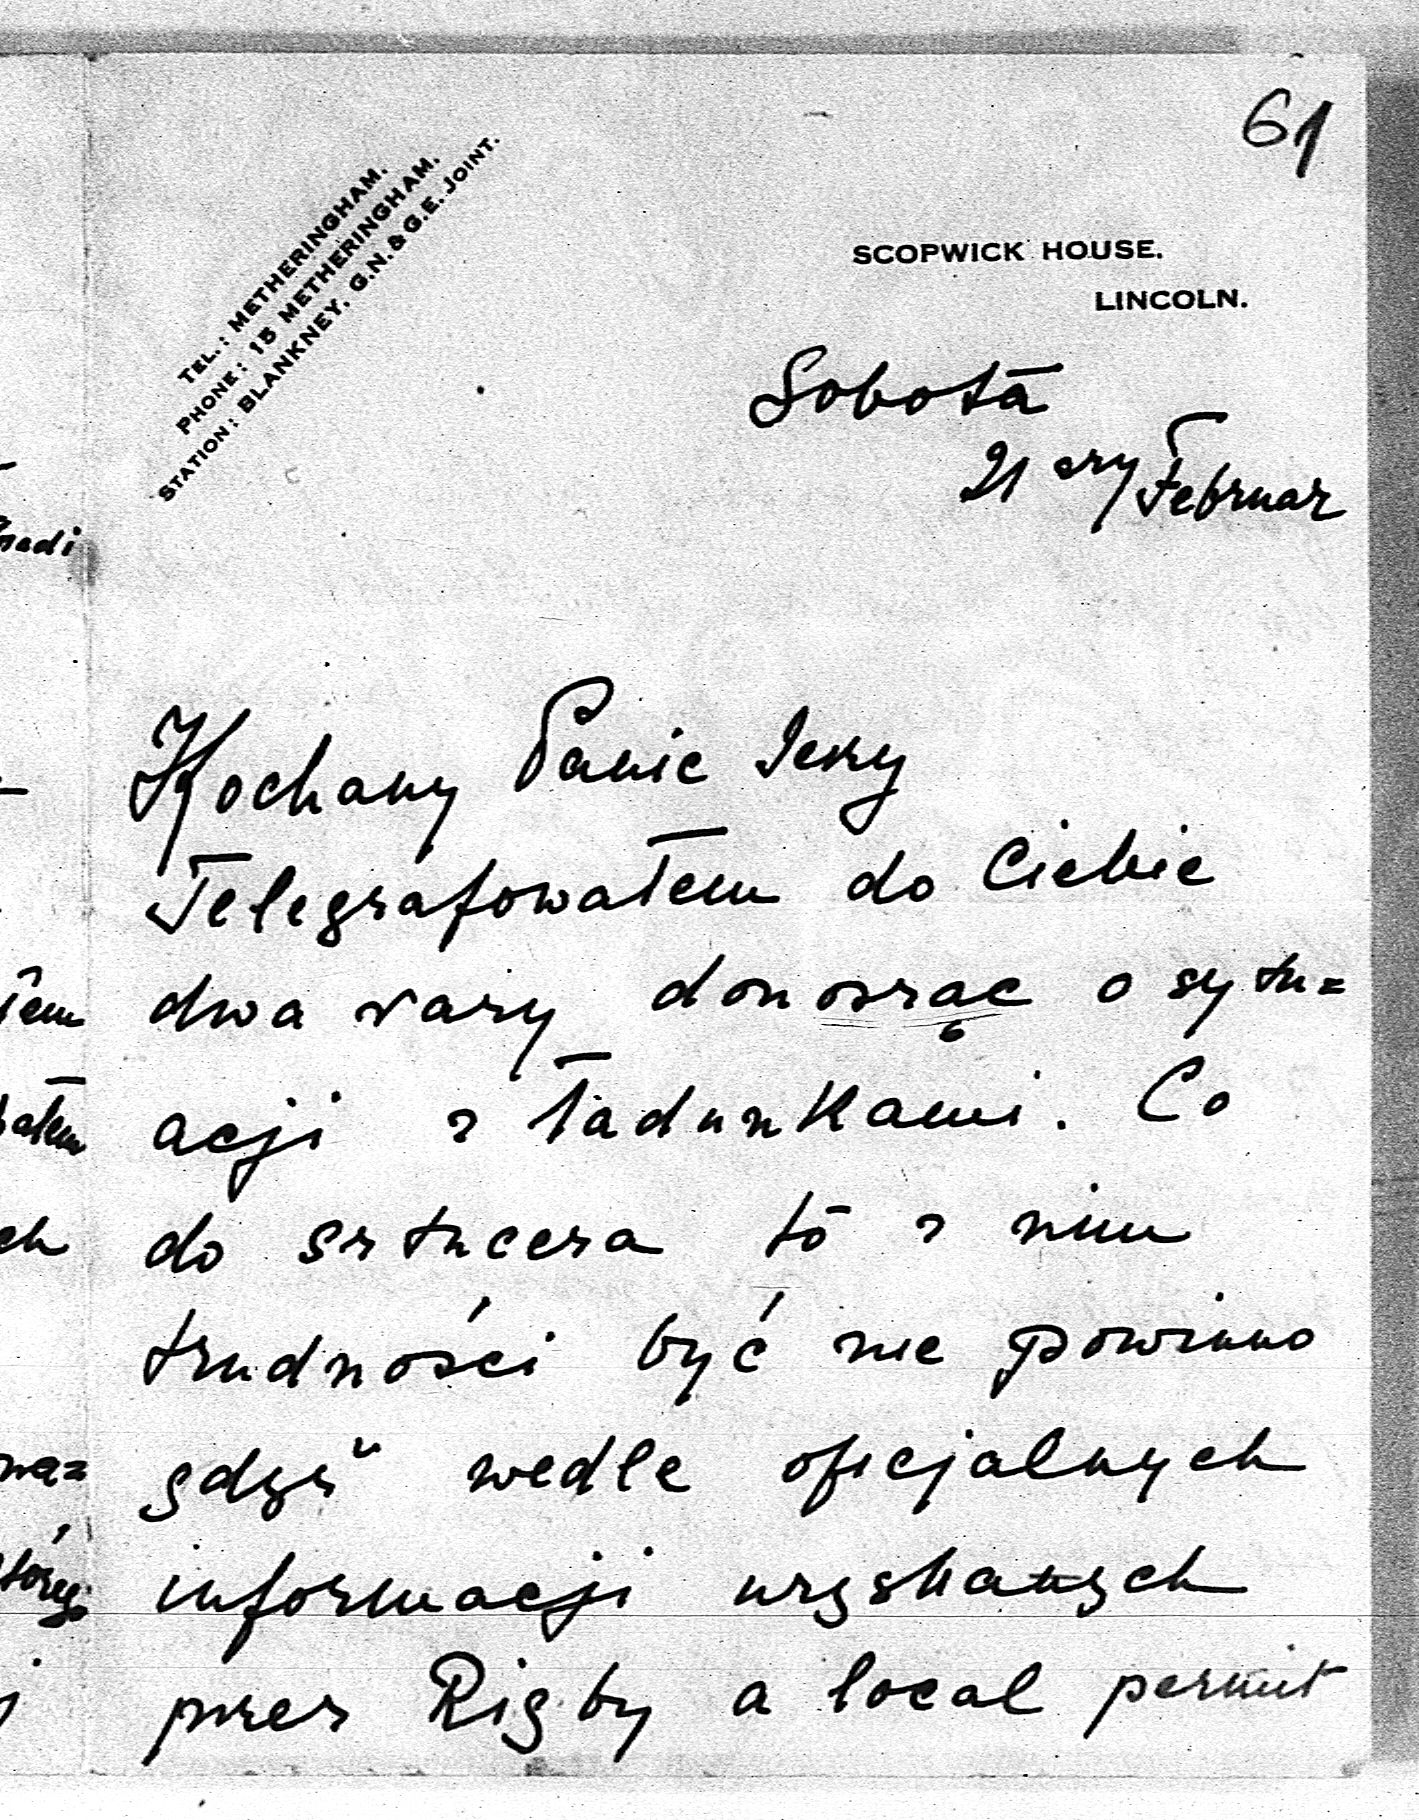 61
TEL.: METHERINGHAM.
PHONE: 15 METHERINGHAM.
STATION: BLANKNEY, G.N. & G.E. JOINT.
SCOPWICK HOUSE.
LINCOLN.
Sobota
21 szy Februar
Kochany Panie Jerzy
Telegrafowałem do Ciebie
dwa razy donosząc o sytu=
acji z ładunkami. Co
do sztucera to z nim
trudności być nie powinno
gdyż wedle oficjalnych
informacji uzyskanych
przez Rigby a local permit